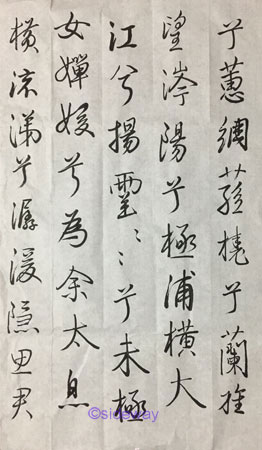 兮蕙綢蓀橈兮蘭旌
望涔陽兮極浦橫大
江兮揚靈〻〻兮未極
女嬋媛兮為余太息
橫流涕兮潺湲隱思君
©sideway